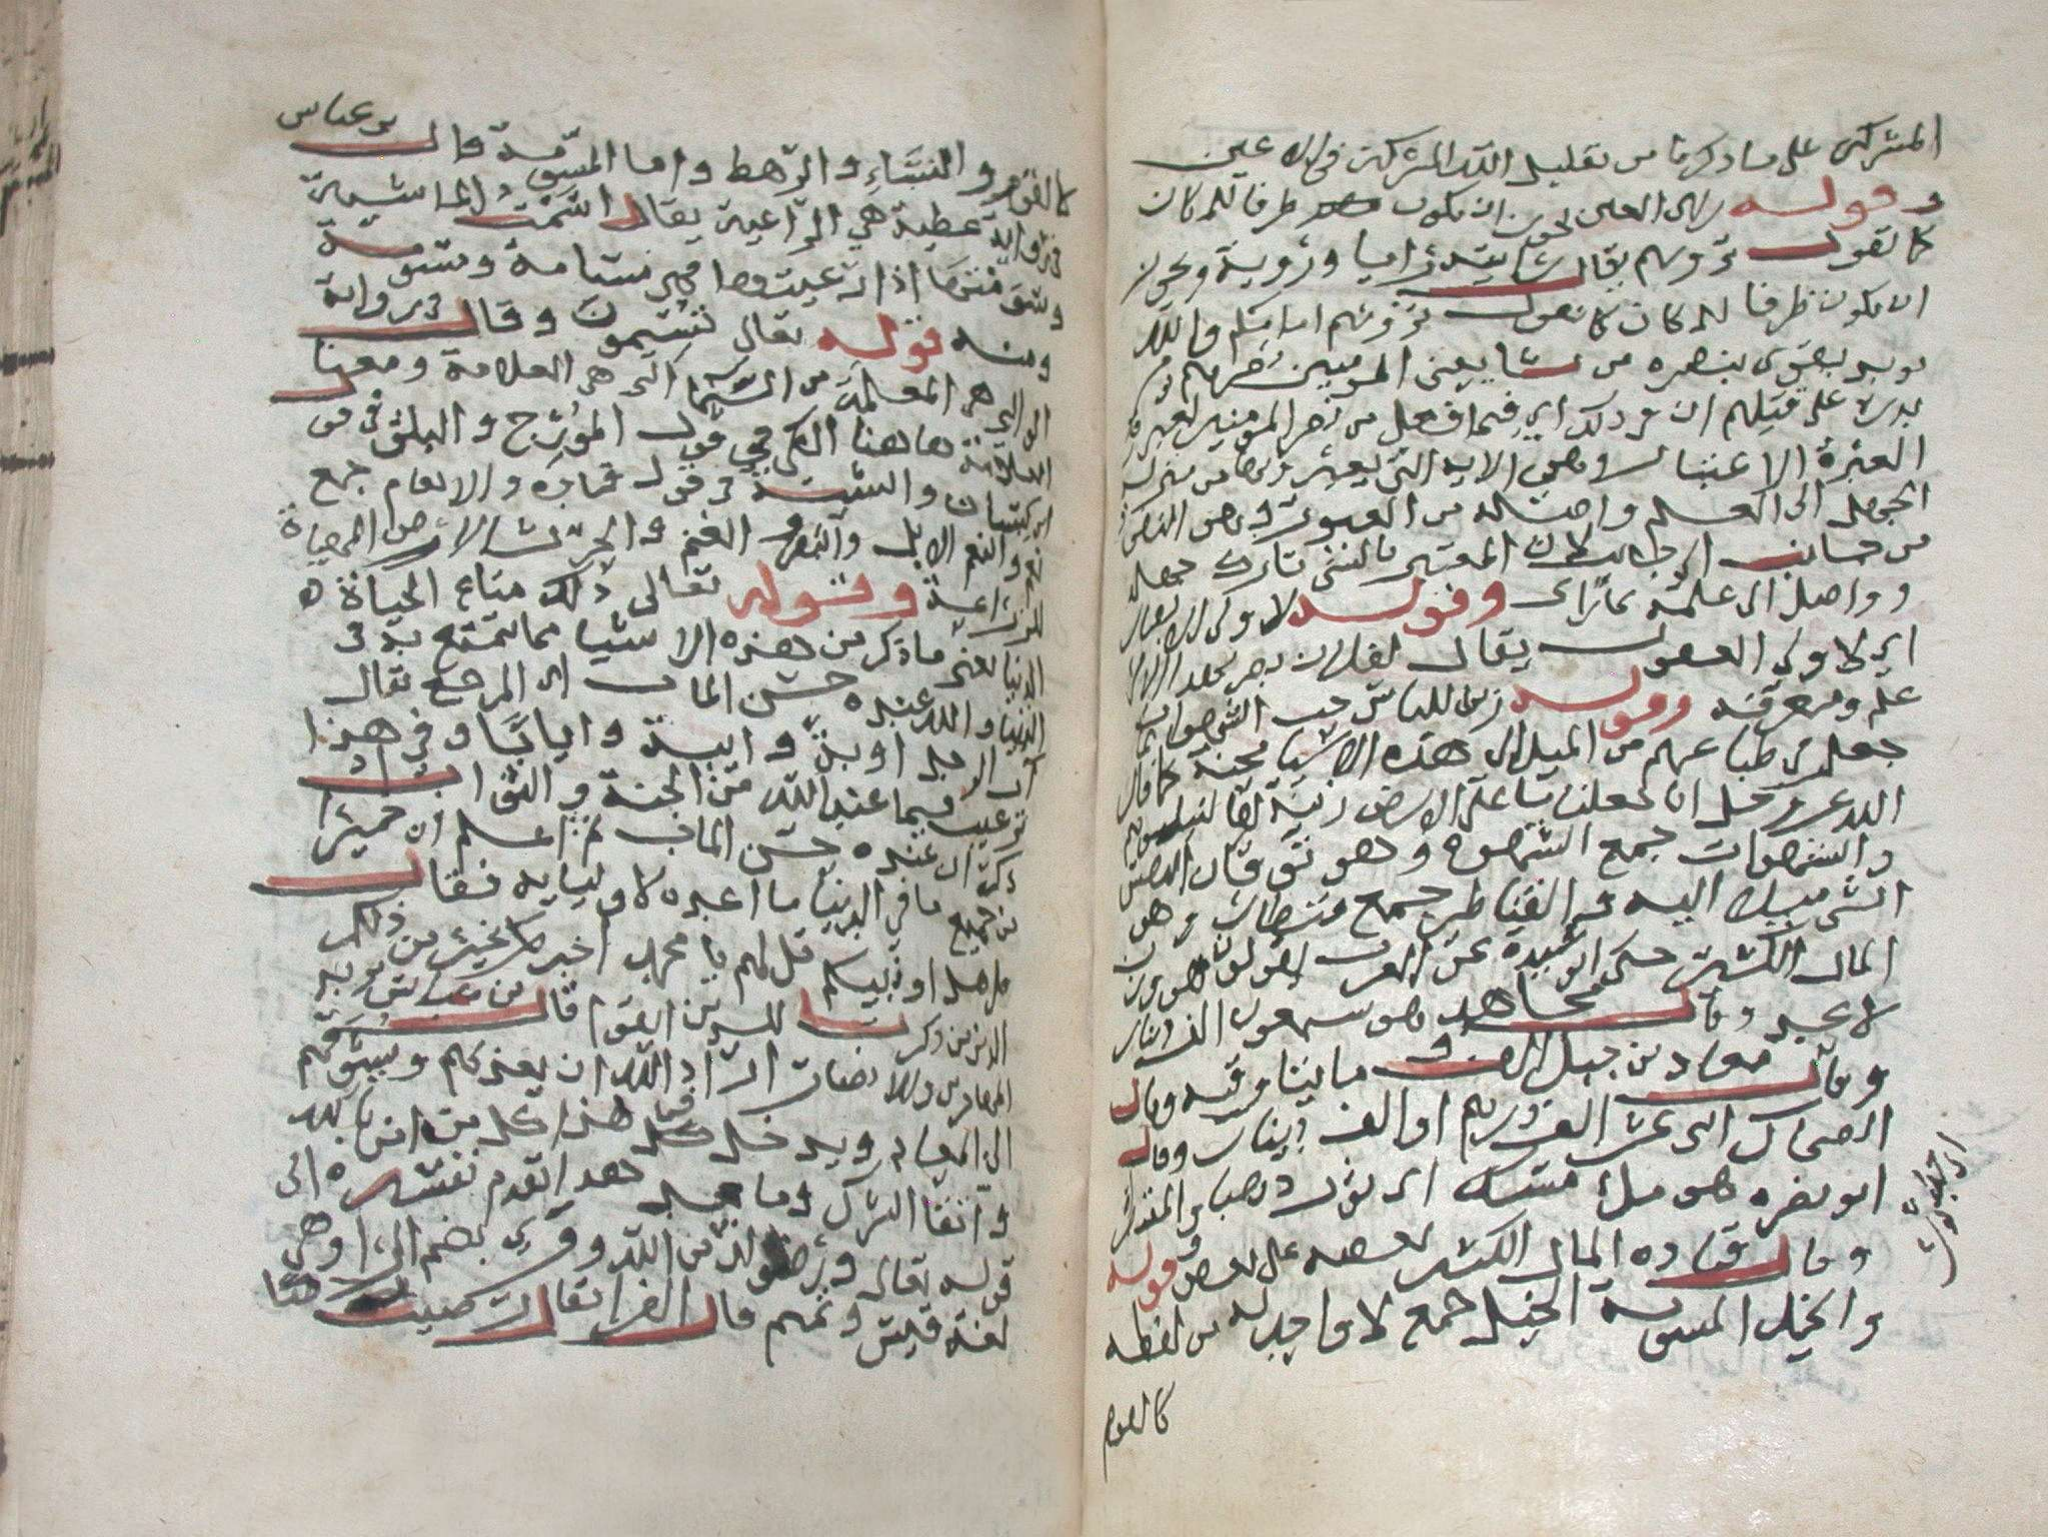 المشركين على ما ذكرنا من تقليل الله المشركين في الاعين
وقوله راى العين يجوز ان يكون طرفا للمكان
كما تقول ترونهم يقال رايته رايا ورؤية ويجوز
ان يكون ظرفا للمكان كما تقول ترونهم امامكم والله
يويد يقوي بنصره من يشا يعني المومنين نصرهم يوم
بدر على قتلهم ان في ذلك اي فيما فعل من نصر المومنين لعبرة
العبرة الاعتبار وهي الاية التي يعبر بها من منزلة
الجهل الى العلم واصله من العبور وهو النفوذ
من جانب الى جانب لان المعتبر بالشي تارك جهله
وواصل الى علمه بما راى وقوله لاولي الابصار
اي لاولي العقول يقال لفلان بصر بهذا الامر اي
علم ومعرفة وقوله زين للناس حب الشهوات
جعل في طباعهم من الميل الى هذه الاشيا محنة كما قال
الله عز وجل انا جعلنا ما على الارض زينة لها لنبلوهم
والشهوات جمع الشهوة وهو توقان النفس
الى الشي ميلا اليه والقناطير جمع قنطار وهو
المال الكثير حكى ابو عبيدة عن العرب يقولون هو وزن
لا يحد وقال مجاهد هو سبعون الف دينار
وقال معاذ بن جبل الف وماينا وقيه وقال
الضحاك اثنى عشر الف درهم او الف دينار وقال
ابو نضره هو ملئ مسك اي ثور ذهبا
اي جلد ثور
وقال قتاده المال الكثير بعضه على بعض وقوله
والخيل المسومة الخيل جمع لا واحد له من لفظه
كالقوم
كالقوم والنساء والرهط واما المسومة قال بن عباس
في رواية عطية هي الراعية يقال اسمت الماشية
وسومتها اذا رعيتها فهي مسامة ومسومة
ومنه قوله تعالى تسيمون وقال في رواية
الوالبي هي المعلمة من السيما التي هي العلامة ومعنى
العلامة هاهنا الكي في قول المورج والبلق في قول
ابن كيسان والشية في قول قتادة والانعام جمع
نعم والنعم الابل والبقر والغنم والحرث الارض المهياة
للزراعة وقوله تعالى ذلك متاع الحياة
الدنيا يعني ما ذكر من هذه الاشيا مما يتمتع به في
الدنيا والله عنده حسن الماب اي المرجع يقال
اب الرجل اوبة وايبة وايابا وفي هذا
ترغيب فيما عند الله من الجنة والثواب اذ
ذكر ان عنده حسن الماب ثم اعلم ان خيرا
من جميع ما في الدنيا ما اعده لاوليايه فقال
قل هل اونبيكم قل لهم يا محمد اخبركم بخير من ذلكم
الذي ذكرت للذين اتقوا قال بن عباس يريد
المهاجرين والانصار اراد الله ان يعزيهم ويشوقهم
الى المعاد ويدخل في هذا كل من امن بالله
واتقا الشرك وما بعد هذا تقدم تفسيره الى
قوله تعالى ورضوان من الله وقرئ بضم الراء وهي
لغة قيس وتميم قال الفرا يقال رضيت رضا